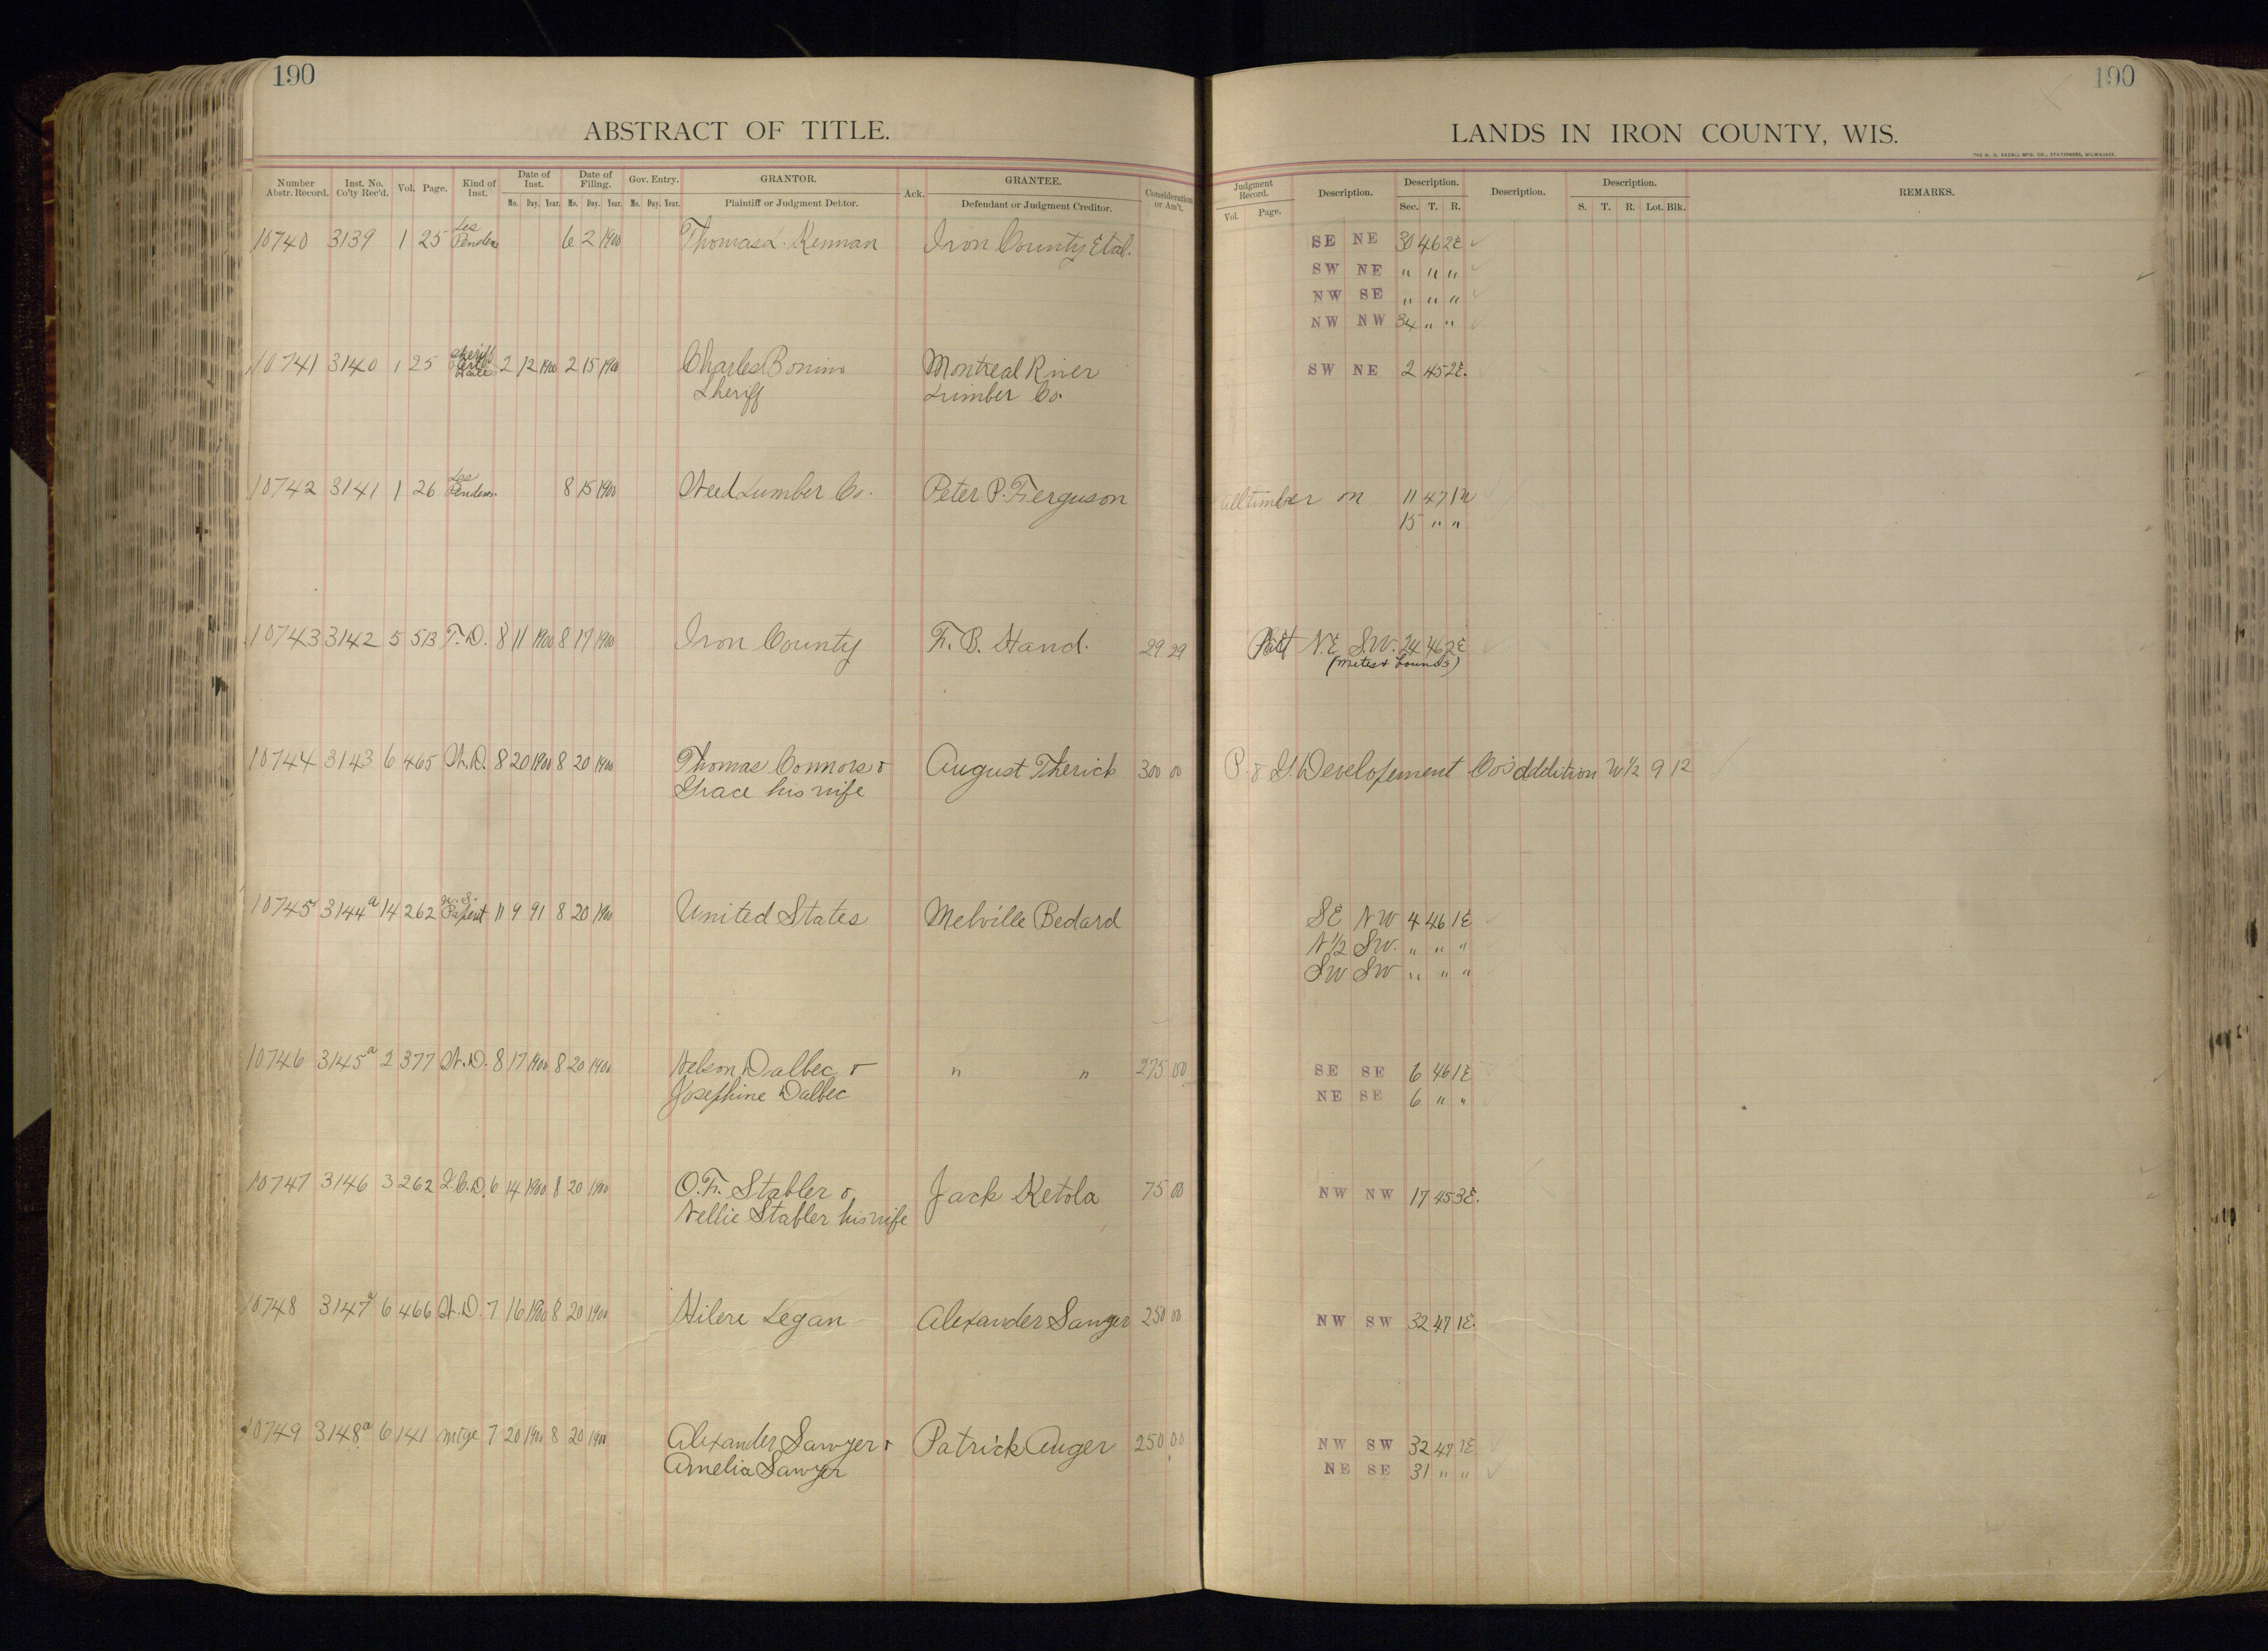 190
190
ABSTRACT OF TITLE.
LANDS IN IRON COUNTY, WIS.
THE H. G. RAZALL MFG. CO., STATIONERS, MILWAUKEE.
Number Abstr. Record. Inst. No. Co'ty Rec'd. Vol. Page. Kind of Inst. Date of Inst. Mo. Day. Year. Date of Filing. Mo. Day. Year. Gov. Entry. Mo. Day. Year. GRANTOR. Plaintiff or Judgment Debtor. Ack. GRANTEE. Defendant or Judgment Creditor. Consideration or Am't.
Judgment Record. Vol. Page. Description. Description. Sec. T. R. Description. Description. S. T. R. Lot. Blk. REMARKS.
10740 3139 1 25 Les Pendens 6 2 1900 Thomas L. Kennan Iron County Et al. SE NE 30 46 2E
SW NE " " "
NW SE " " "
NW NW 34 " "
10741 3140 1 25 Sheriff 2 12 1900 2 15 1900 Charles Bonino Montreal River SW NE 2 45 2E.
Sheriff Lumber Co.
10742 3141 1 26 Les Pendens. 8 15 1900 Weed Lumber Co. Peter P. Ferguson All timber on 11 47 1W
15 " "
10743 3142 5 513 T. D. 8 11 1900 8 17 1900 Iron County F. B. Hand. 29 29 Part N.E S.W. 24 46 2E
(metes & bounds)
10744 3143 6 465 W. D. 8 20 1900 8 20 1900 Thomas Connors & August Therick 300 00 P. & G. Developement Co's addition W 1/2 9 12
Grace his wife
10745 3144a 14 262 U. S. Patent 11 9 91 8 20 1900 United States Melville Bedard SE NW 4 46 1E
N 1/2 SW. " " "
SW SW " " "
10746 3145a 2 377 W. D. 8 17 1900 8 20 1900 Nelson Dalbec & " " 275 00 SE SE 6 46 1E
Josephine Dalbec NE SE 6 " "
10747 3146 3 262 Q. C. D. 6 14 1900 8 20 1900 O. F. Stabler & Jack Ketola 75 00 NW NW 17 45 3E.
Nellie Stabler his wife
10748 3147a 6 466 W. D. 7 16 1900 8 20 1900 Hilere Legan Alexander Sawyer 250 00 NW SW 32 47 1E.
10749 3148a 6 141 Mtge 7 20 1900 8 20 1900 Alexander Sawyer & Patrick Auger 250 00 NW SW 32 47 1E
Amelia Sawyer NE SE 31 " "